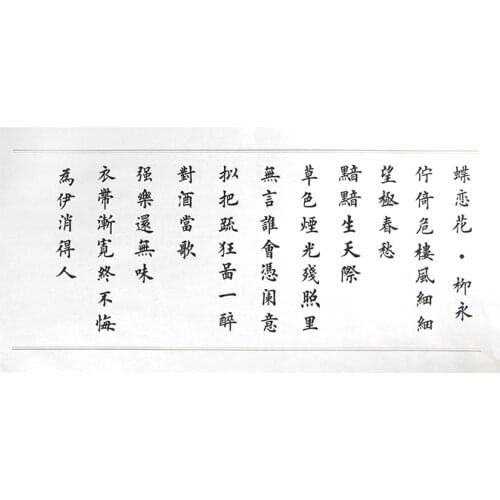 蝶恋花・柳永
佇倚危樓風細細
望極春愁
黯黯生天際
草色煙光殘照里
無言誰會憑闌意
拟把疏狂啚一醉
對酒當歌
强樂還無味
衣帶漸寬終不悔
為伊消得人